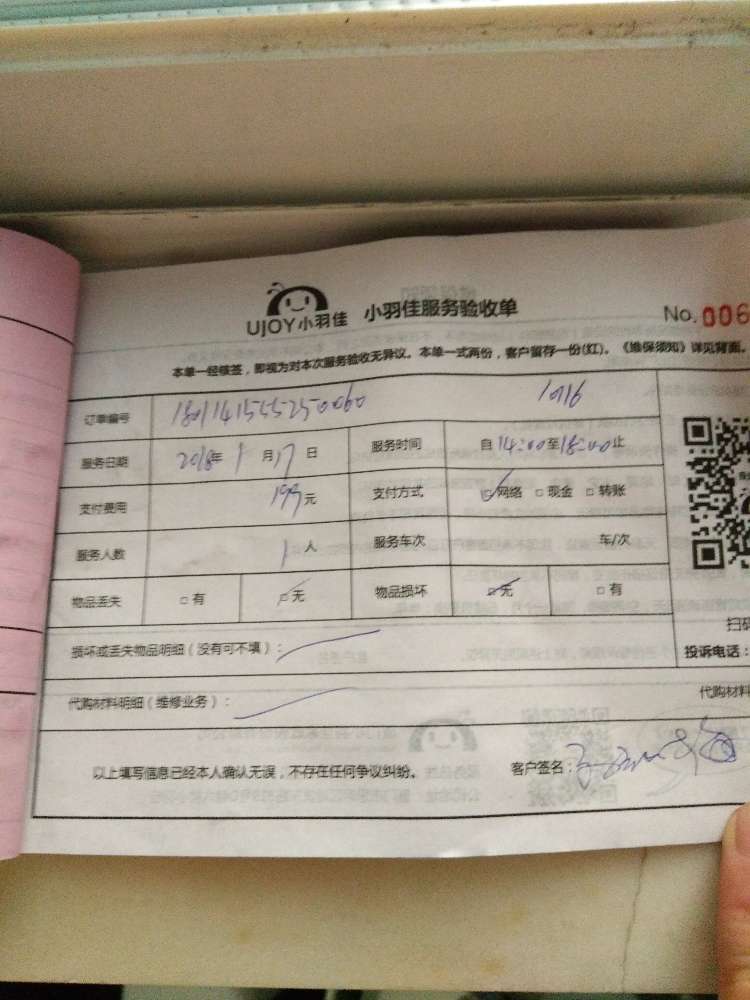 UJOY小羽佳 小羽佳服务验收单 No.006
本单一经核签，即视为对本次服务验收无异议。本单一式两份，客户留存一份(红)。《维保须知》详见背面。
订单编号 180114155525250060 1016
服务日期 2018年 1 月 17 日 服务时间 自 14:00 至 18:00 止
支付费用 199 元 支付方式 网络 现金 转账
服务人数 1 人 服务车次 车/次
物品丢失 有 无 物品损坏 无 有
扫码
损坏或丢失物品明细（没有可不填）：
投诉电话：
代购材料明细（维修业务）： 代购材料
以上填写信息已经本人确认无误，不存在任何争议纠纷。 客户签名：